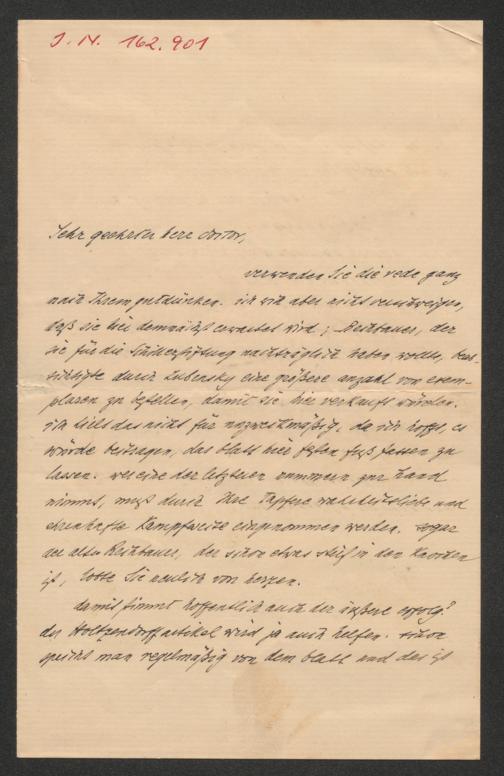 J. N. 162.901
Sehr geehrter herr doctor,
verwenden Sie die rede ganz
nach Ihrem gutdünken. ich will aber nicht verschweigen,
daß sie hier demnächst erwartet wird; Rechbauer, der
sie für die Schillerstiftung nachträglich haben wollte, beab-
sichtigte durch Lubensky eine größere anzahl von exem-
plaren zu bestellen, damit sie hier verkauft würden.
ich hielt das nicht für unzweckmäßig, da ich hoffe, es
würde beitragen, das blatt hier festen fuß fassen zu
lassen. wer eine der letzteren nummern zur hand
nimmt, muß durch Ihre tapfere wahrheitsliebe und
ehrenhafte kampfweise eingenommen werden. sogar
der alte Rechbauer, der schon etwas steif in den knochen
ist, lobte Sie neulich von herzen.
damit stimmt hoffentlich auch der äußere erfolg?
der Holtzendorffartikel wird ja auch helfen. schon
spricht man regelmäßig von dem blatt und das ist